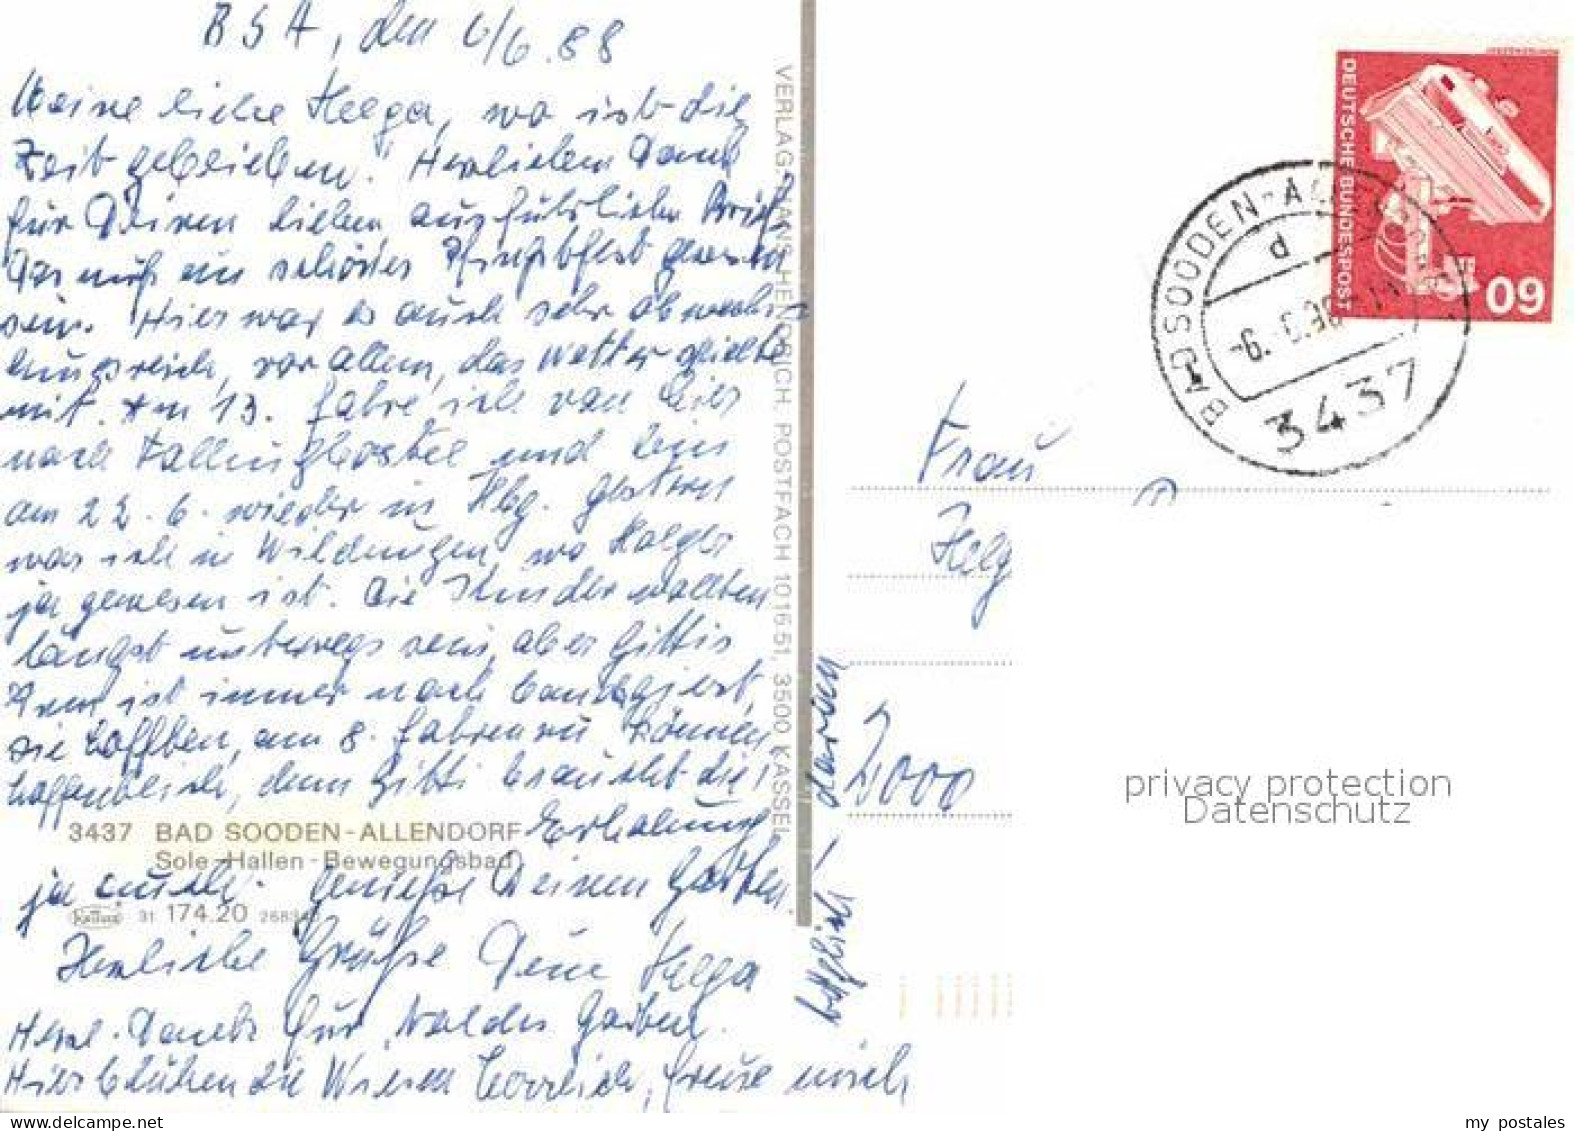 BSA, den 6/6.88
Meine liebe Helga, wo ist die
Zeit geblieben. Herzlichen Dank
für Deinen lieben ausführlichen Brief.
Das muß ein schönes Pfingstfest gewesen
sein. Hier war es auch sehr abwechs
lungsreich, vor allem, das Wetter spielte
mit. Am 13. fahre ich von hier
nach Fallingbostel und bin
am 22.6. wieder in Hbg. Gestern
war ich in Wildungen, wo Holger
ja gewesen ist. Die Kinder wollten
längst unterwegs sein, aber Gittis
Arm ist immer noch bandagiert,
sie hofften, am 8. fahren zu können
hoffentlich, denn Gitti braucht die
Erholung
ja auch. Genieße Deinen Garten.
Herzliche Grüße Deine Helga
Herzl. Dank für Garten.
Hier blühen die Wiesen herrlich, freue mich
täglich daran
3437 BAD SOODEN-ALLENDORF
Sole-Hallen-Bewegungsbad
31 174.20
VERLAG: HANS HENDRICH, POSTFACH 101651, 3500 KASSEL
DEUTSCHE BUNDESPOST
60
BAD SOODEN-ALLENDORF
d
-6. 6.88
3437
Frau
Helg
2000
privacy protection
Datenschutz
my postales
www.delcampe.net